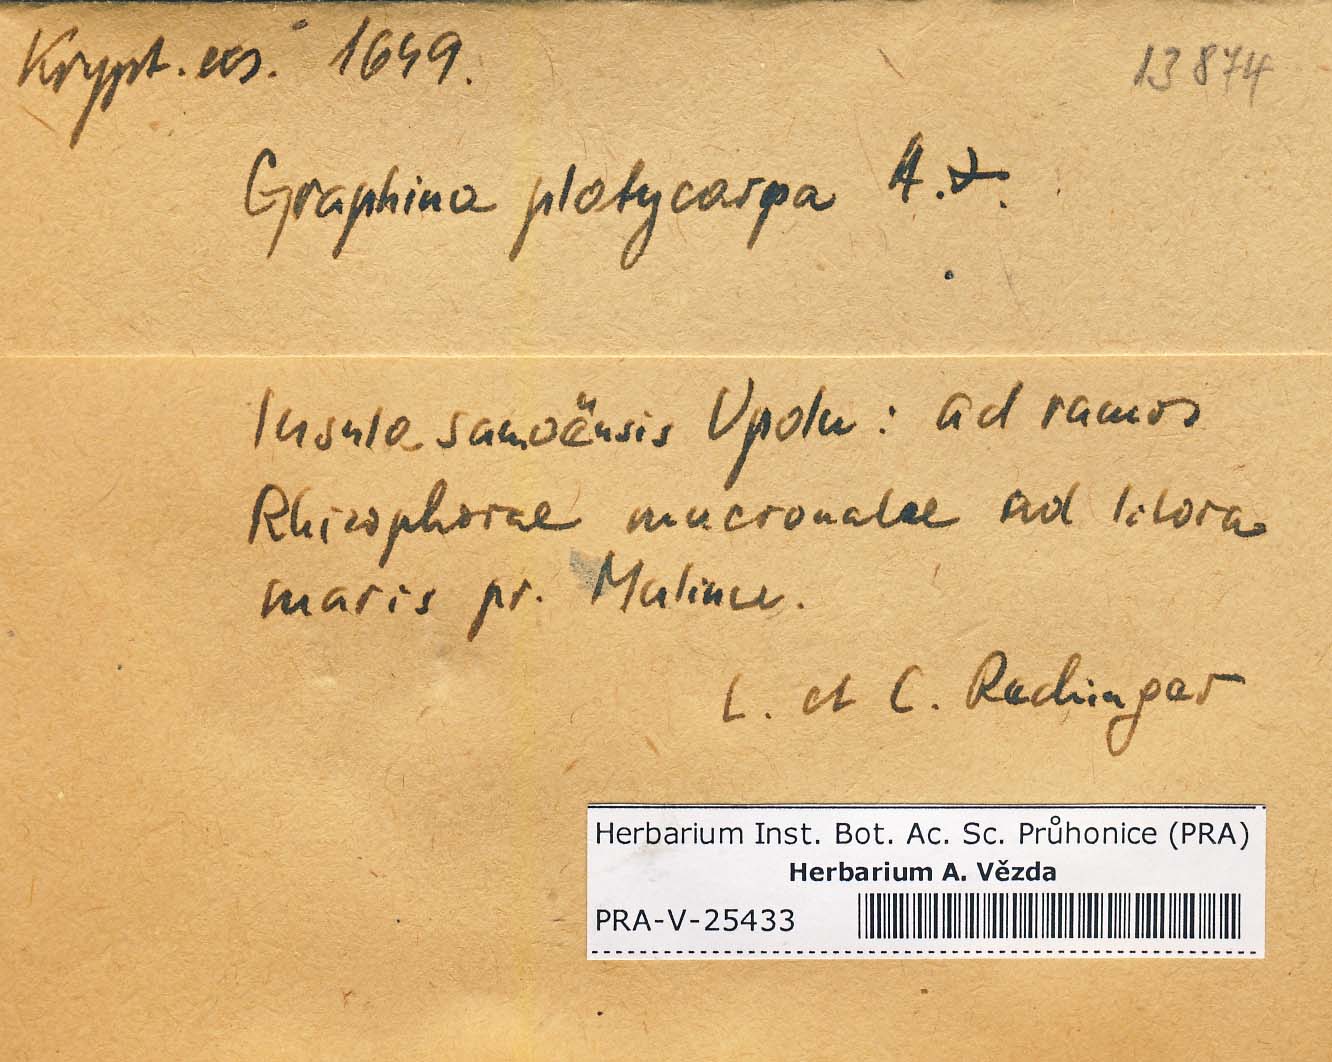 Krypt. exs. 1649. 13874
Graphina platycarpa A. Z.
Insula samoënsis Upolu: ad ramos
Rhizophorae mucronatae ad litora
maris pr. Malinu.
L. et C. Rechinger
Herbarium Inst. Bot. Ac. Sc. Průhonice (PRA)
Herbarium A. Vězda
PRA-V-25433